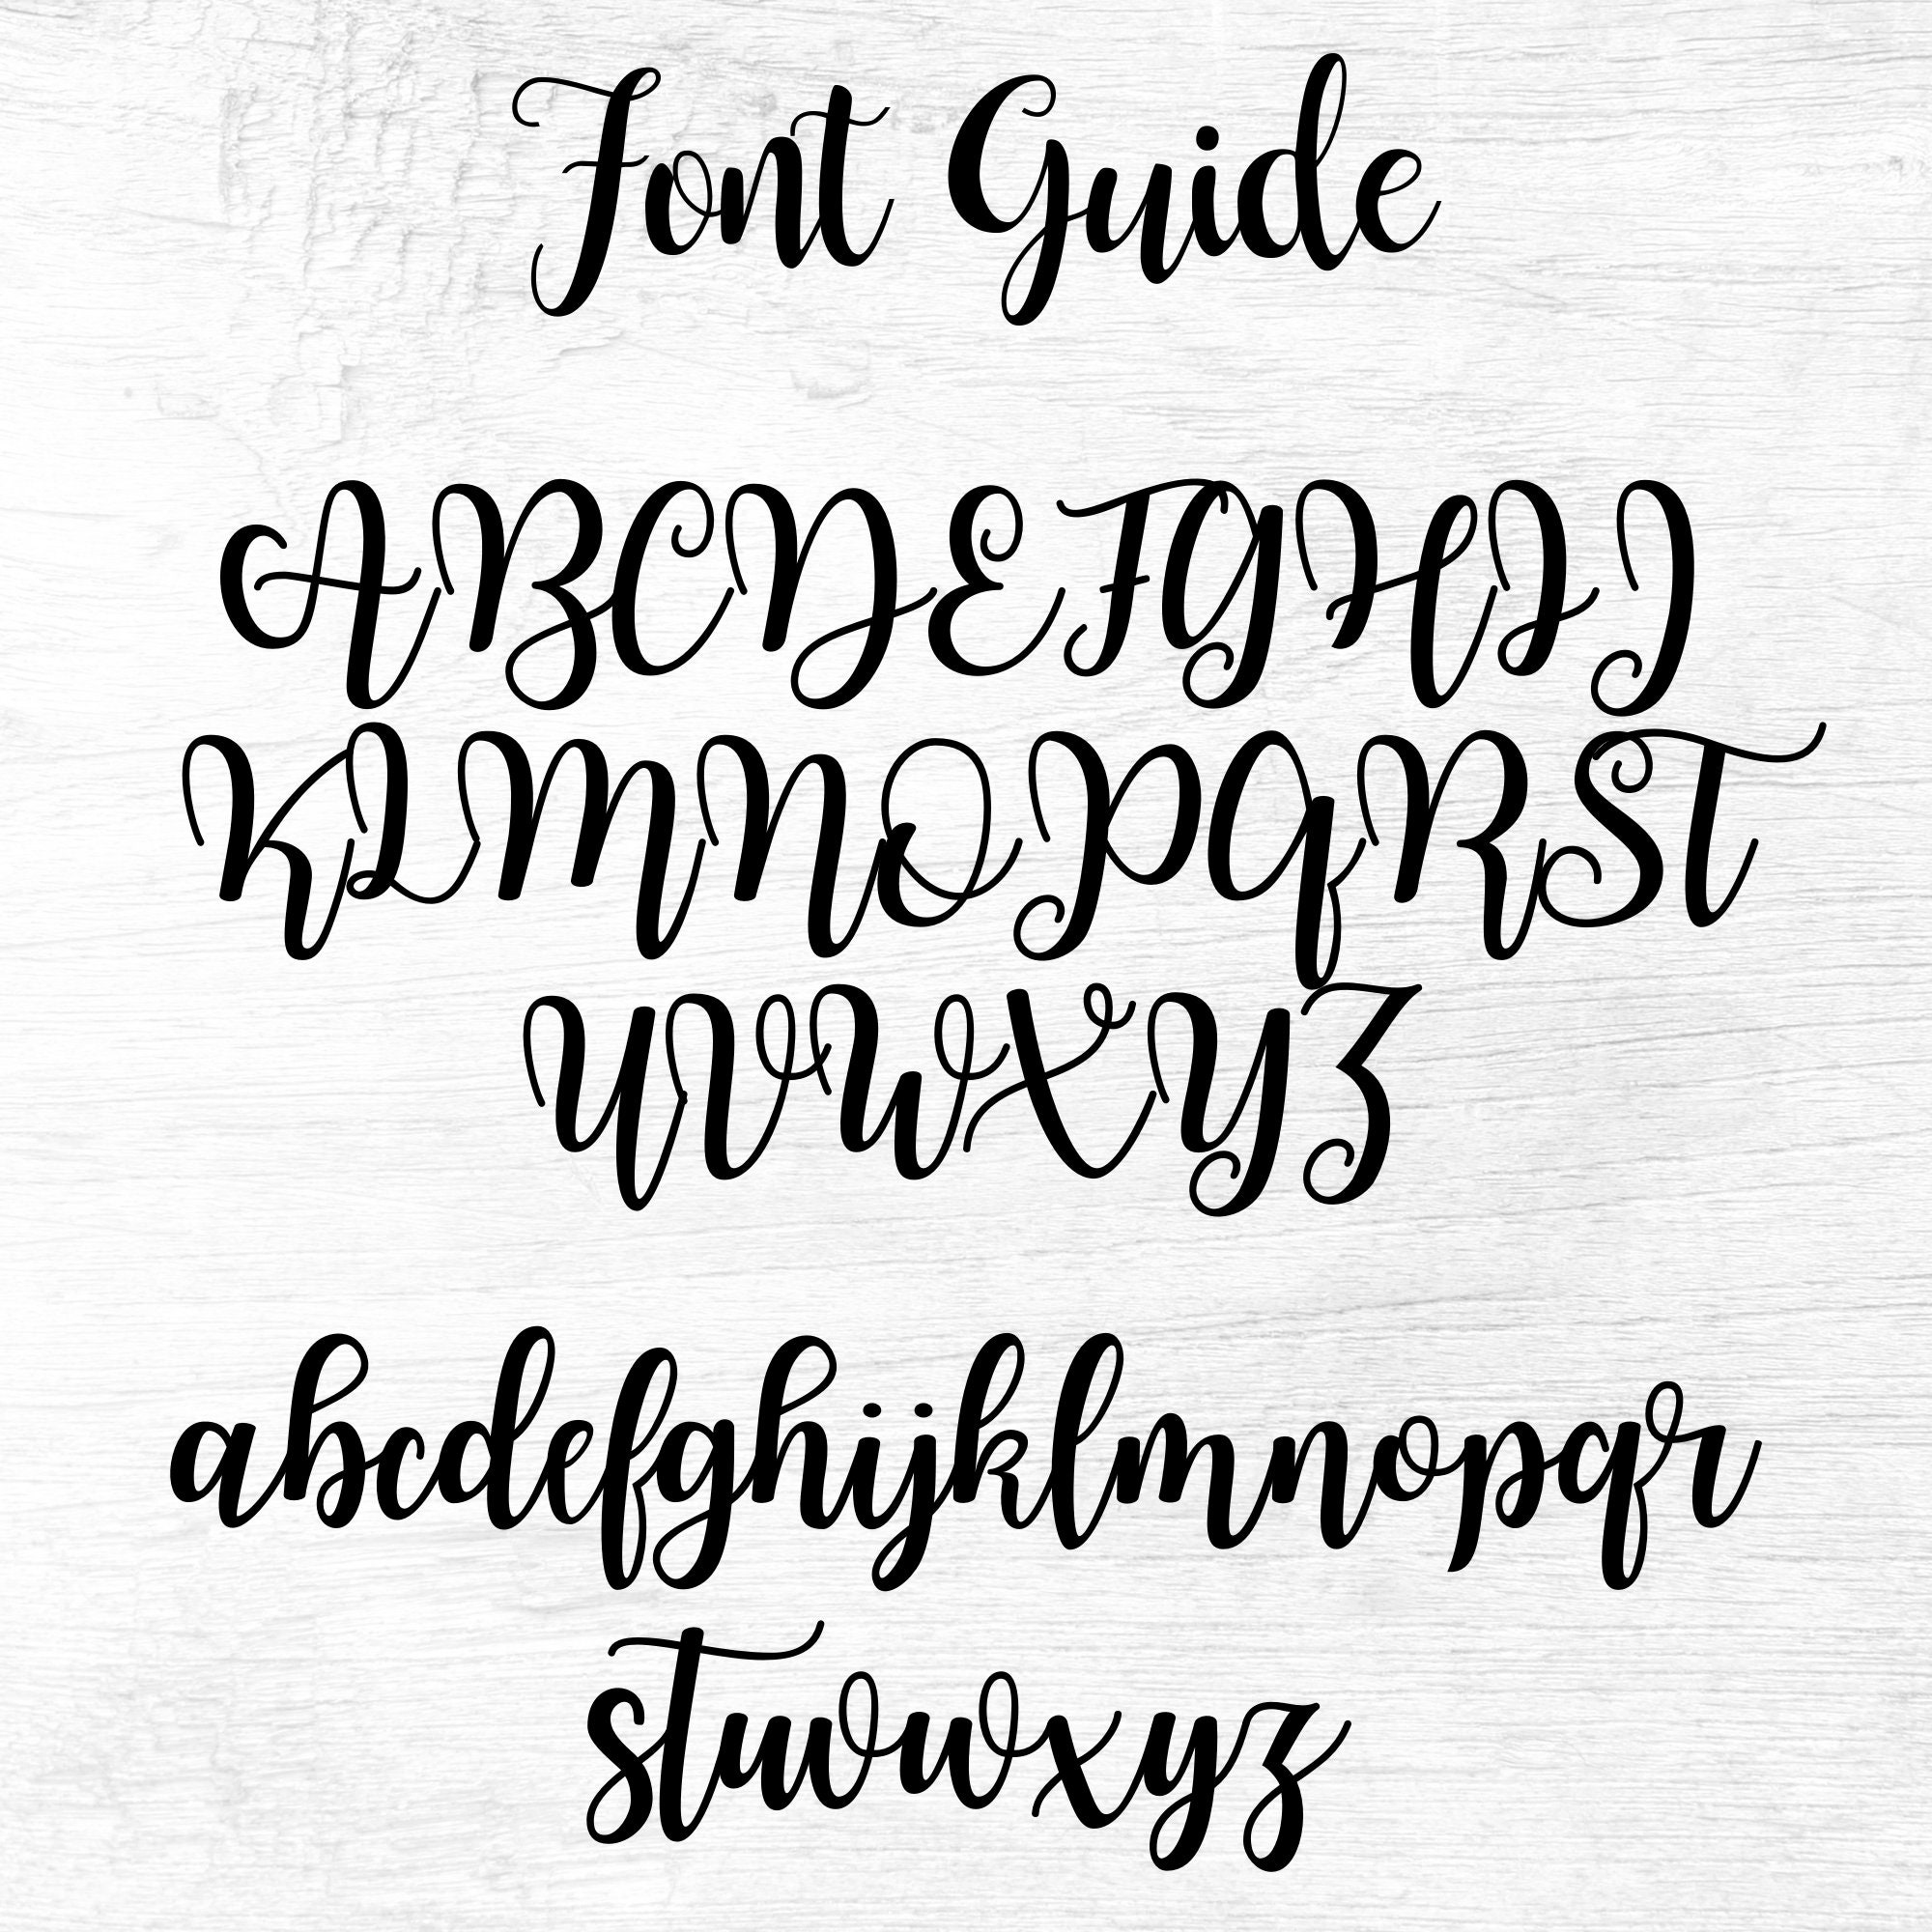 Font Guide
ABCDEFGHIJ
KLMNOPQRST
UVWXYZ
abcdefghijklmnopqr
stuvwxyz